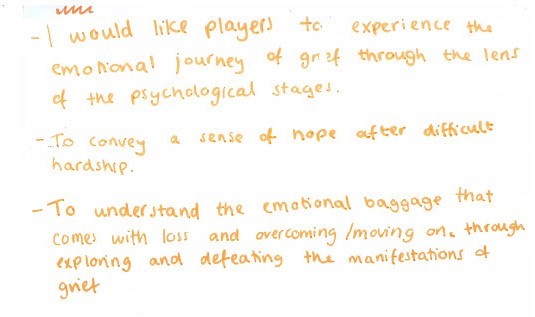 - I would like players to experience the
emotional journey of grief through the lens
of the psychological stages.
- To convey a sense of hope after difficult
hardship.
- To understand the emotional baggage that
comes with loss and overcoming/moving on. through
exploring and defeating the manifestations of
grief